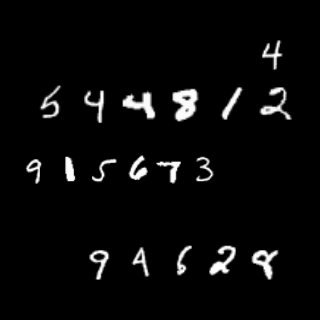 4
544812
915673
94628